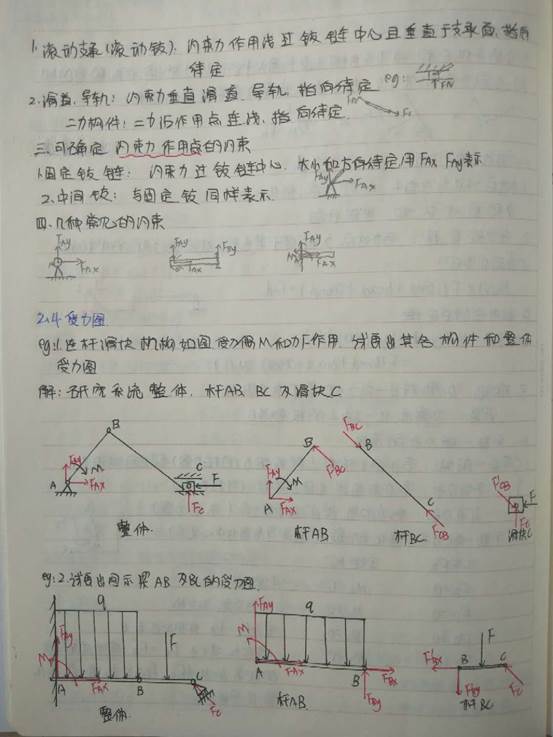 1. 滚动支座(滚动铰): 约束力作用线过铰链中心且垂直于支承面, 指向
待定 eg: FN
2. 滑道、导轨: 约束力垂直滑道、导轨, 指向待定
二力构件: 二力沿作用点连线, 指向待定
三. 可确定约束力作用点的约束
1. 固定铰链: 约束力过铰链中心, 大小和方向待定用 FAx FAy表示
2. 中间铰: 与固定铰同样表示. FAy FAx
四. 几种常见的约束
FAy FAx FAy FAx FAy MA FAx
2.4 受力图
eg: 1. 连杆滑块机构如图受力偶M和力F作用, 试画出其各构件和整体
受力图
解: 研究系统整体、杆AB、BC及滑块C
A B C FAy FAx M F FC
整体.
A B FAy FAx M FBC
杆AB
FBC B C FCB
杆BC
FCB F FC
滑块C
eg: 2. 试画出图示梁AB及BC的受力图.
q FAy M A FAx B F C FC
整体.
FAy q M A FAx B FBx FBy
杆AB.
FBx B F C FBy FC
杆BC